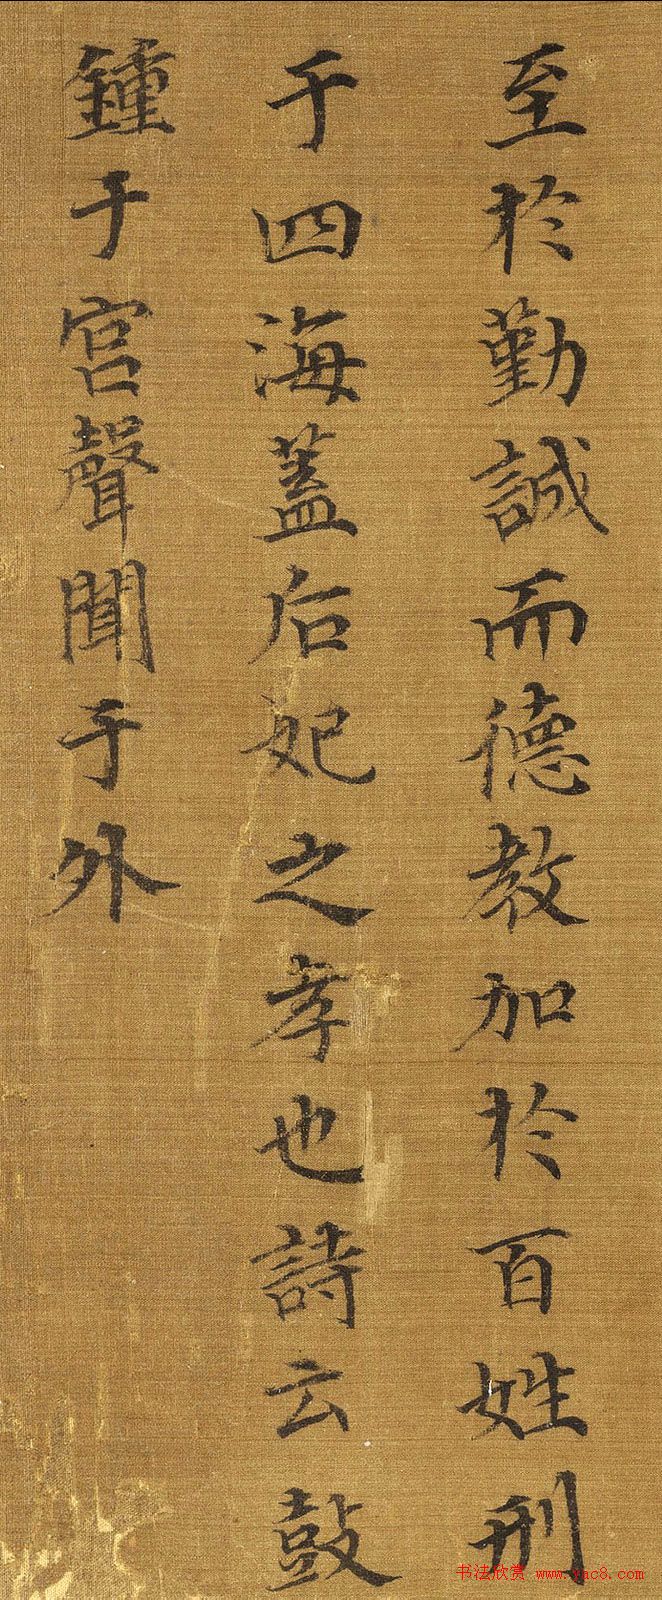 至於勤誠而德教加於百姓刑
于四海蓋后妃之孝也詩云鼓
鍾于宮聲聞于外
书法欣赏 www.yac8.com